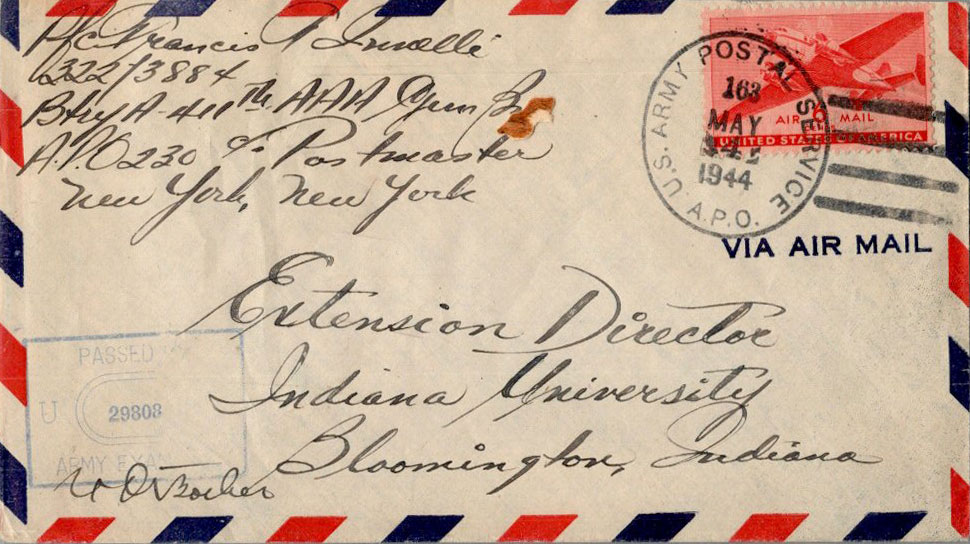 Pfc Francis T
32213884
Btry A - 411th AAA Gun Bn
A.P.O 230 c/o Postmaster
New York, New York
U.S. ARMY POSTAL SERVICE
163
MAY
1944
A.P.O.
AIR 6 MAIL
UNITED STATES OF AMERICA
VIA AIR MAIL
Extension Director
Indiana University
Bloomington, Indiana
PASSED
U 29808
ARMY EXA